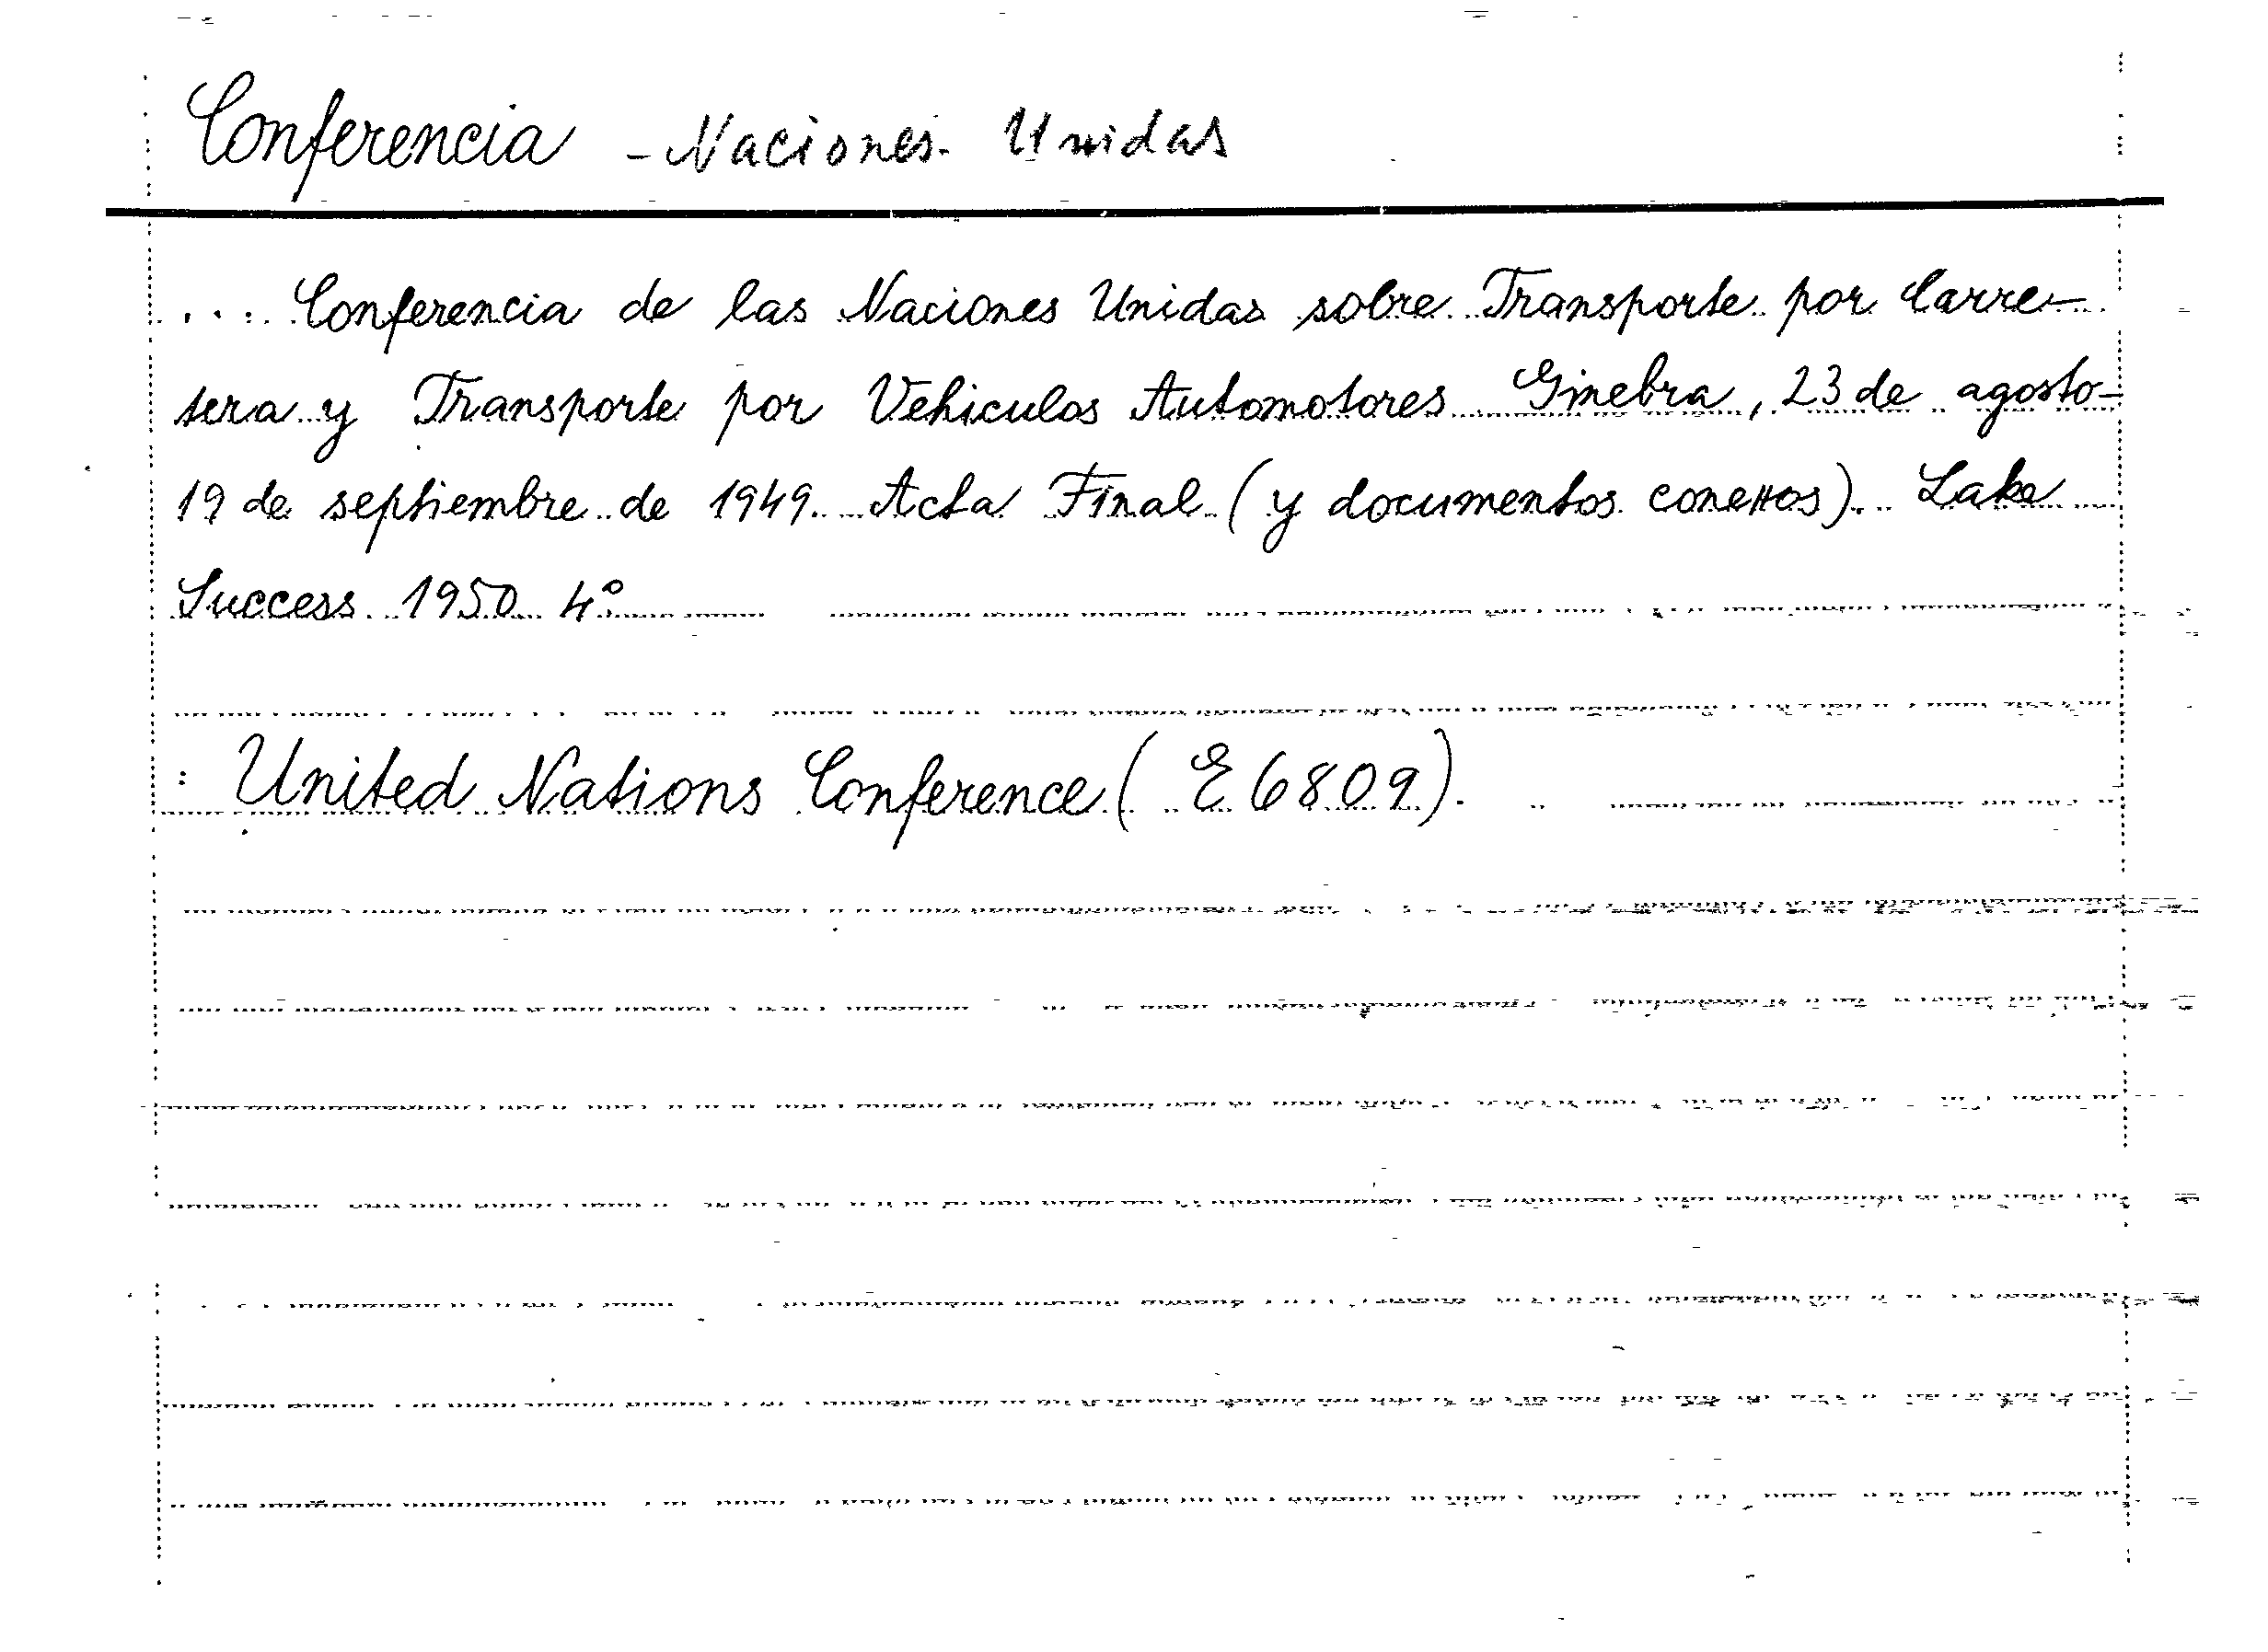 Conferencia - Naciones Unidas
.... Conferencia de las Naciones Unidas sobre Transporte por Carre-
tera y Transporte por Vehiculos Automotores Ginebra, 23 de agosto-
19 de septiembre de 1949. Acta Final (y documentos conexos). Lake
Success 1950 4°
: United Nations Conference (E 6809).